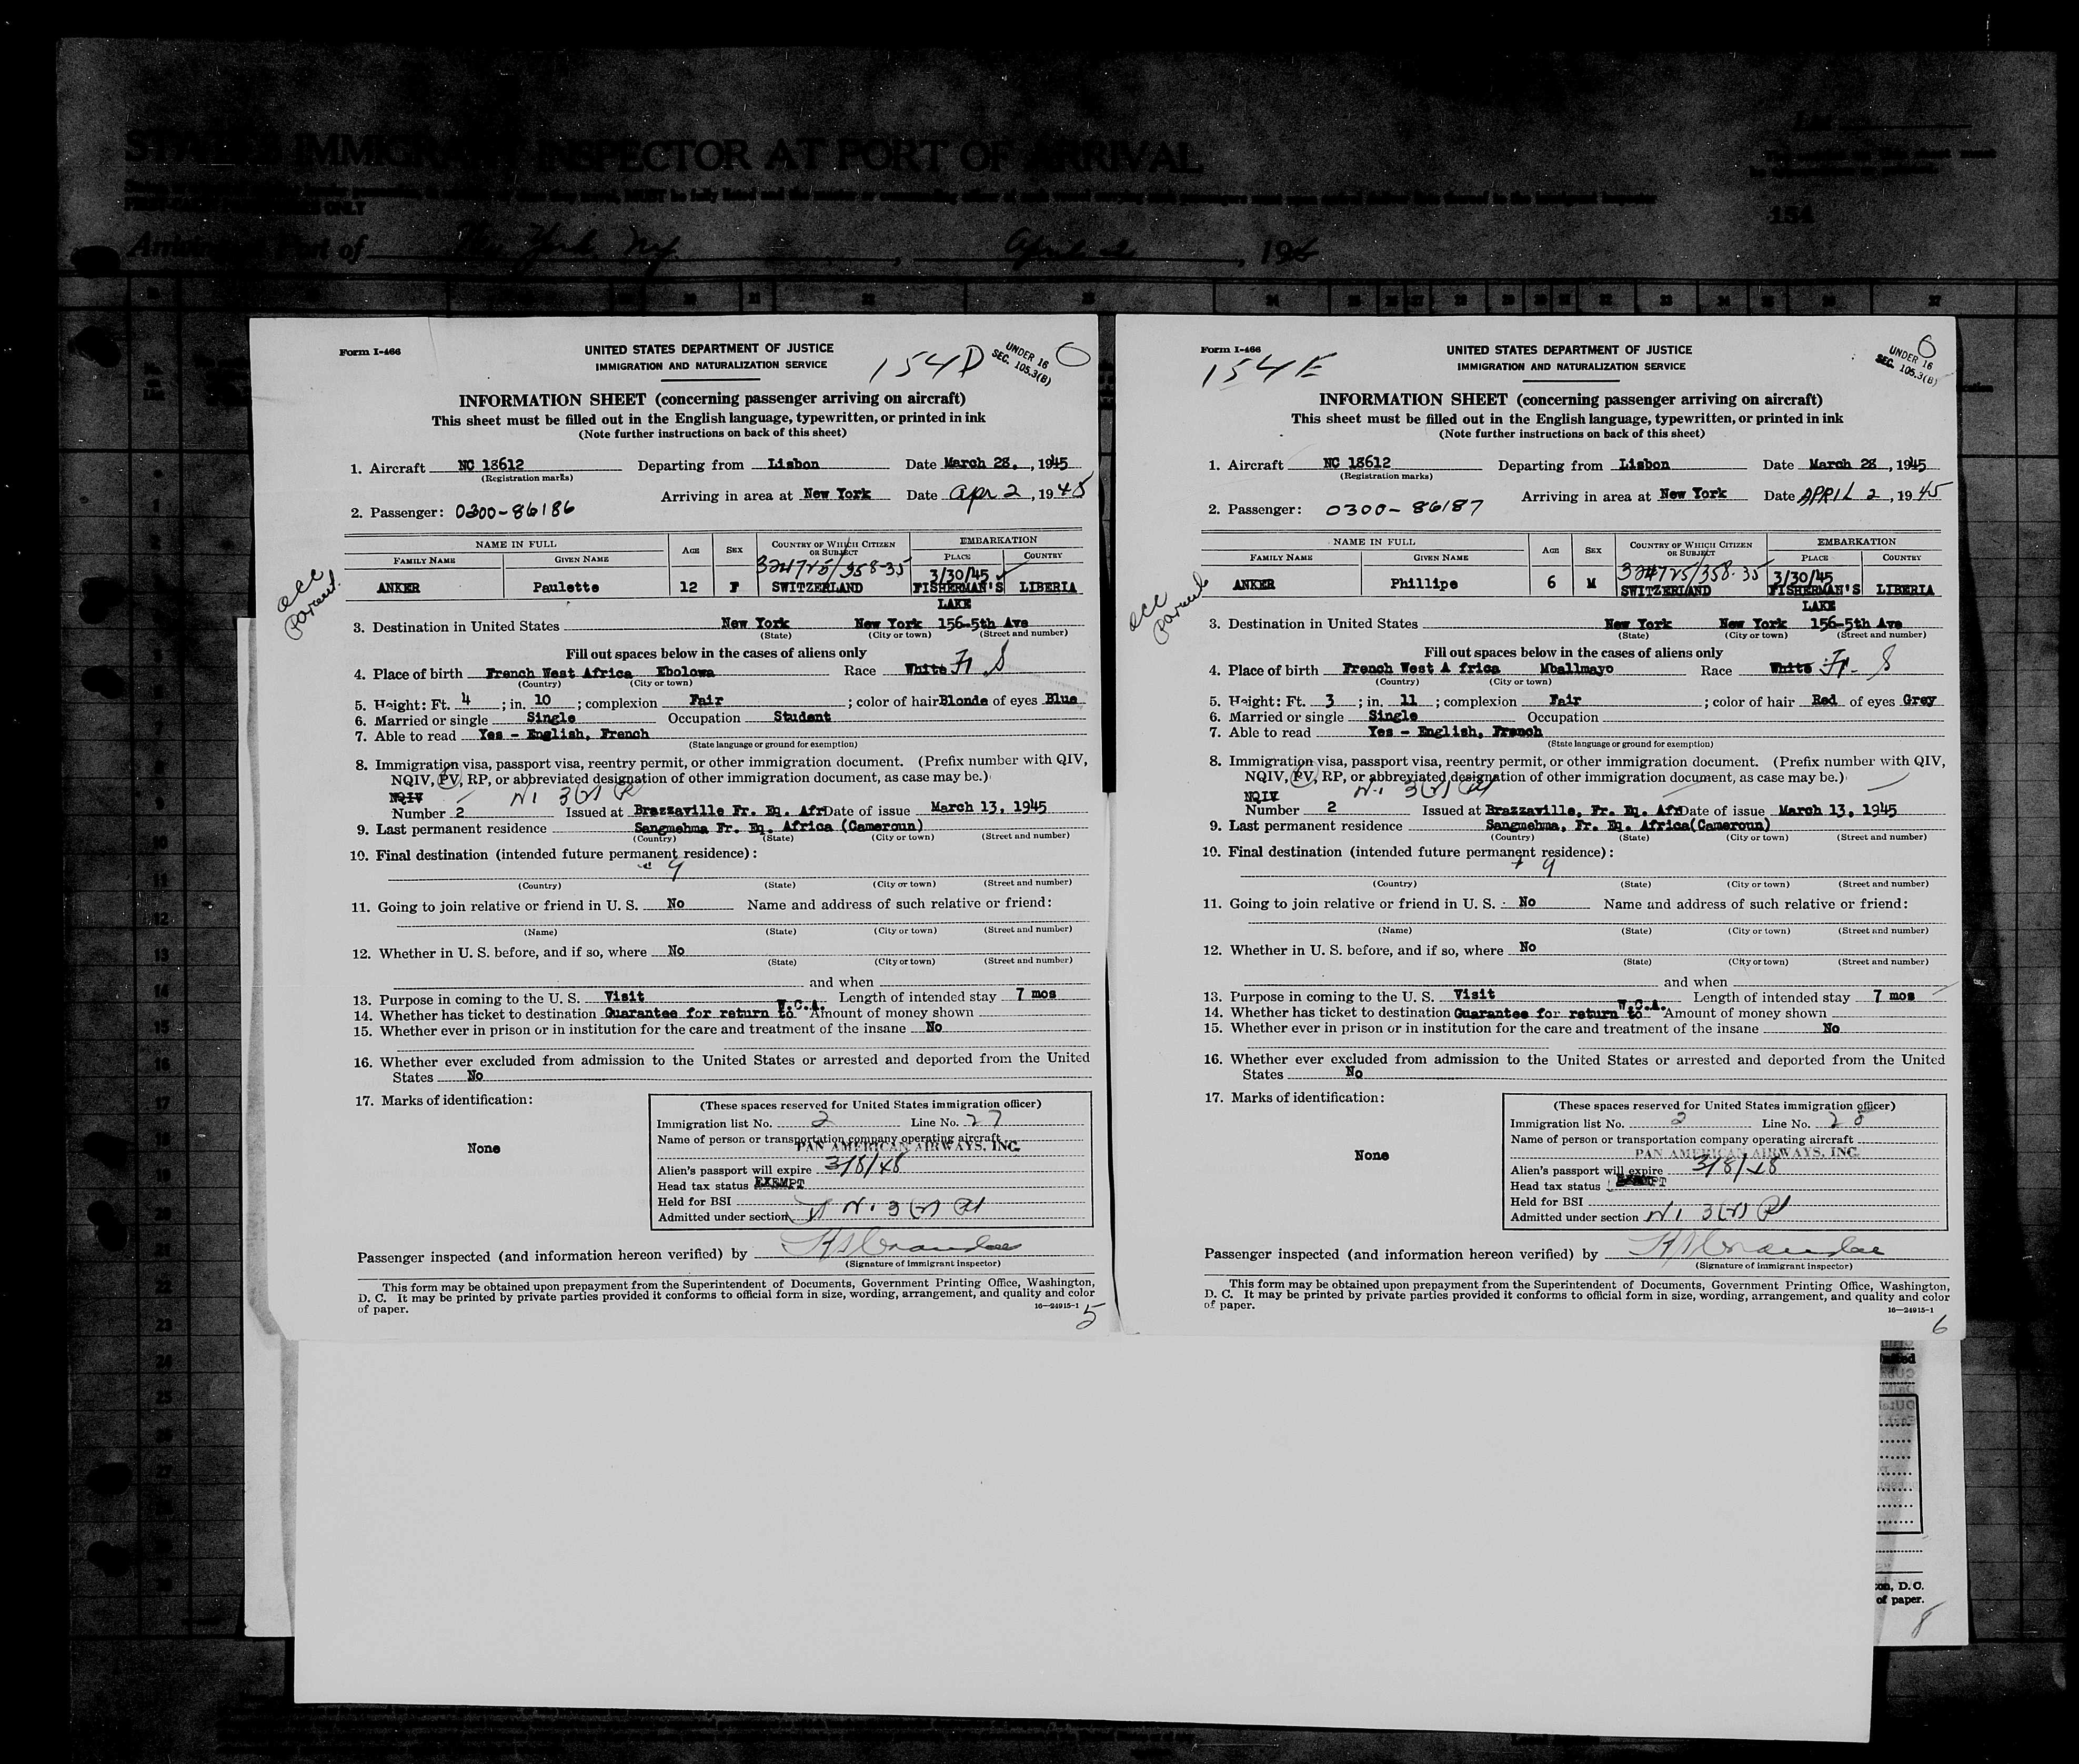 STATES IMMIGRANT INSPECTOR AT PORT OF ARRIVAL
Port of New York, N.Y. , April 2 , 19
154
Form I-466
UNITED STATES DEPARTMENT OF JUSTICE
IMMIGRATION AND NATURALIZATION SERVICE
154D
UNDER 16
SEC. 105.3(B)
INFORMATION SHEET (concerning passenger arriving on aircraft)
This sheet must be filled out in the English language, typewritten, or printed in ink
(Note further instructions on back of this sheet)
1. Aircraft NC 18612 Departing from Lisbon Date March 28, , 1945
(Registration marks)
Arriving in area at New York Date Apr 2 , 1945
2. Passenger: 0300-86186
NAME IN FULL AGE SEX COUNTRY OF WHICH CITIZEN OR SUBJECT EMBARKATION
FAMILY NAME GIVEN NAME PLACE COUNTRY
324725/358-35 3/30/45
ANKER Paulette 12 F SWITZERLAND FISHERMAN'S LIBERIA
LAKE
acc
Parent.
3. Destination in United States New York New York 156-5th Ave
(State) (City or town) (Street and number)
Fill out spaces below in the cases of aliens only
4. Place of birth French West Africa Ebolowa Race White Fr S
(Country) (City or town)
5. Height: Ft. 4 ; in. 10 ; complexion Fair ; color of hair Blonde of eyes Blue
6. Married or single Single Occupation Student
7. Able to read Yes - English, French
(State language or ground for exemption)
8. Immigration visa, passport visa, reentry permit, or other immigration document. (Prefix number with QIV,
NQIV, PV, RP, or abbreviated designation of other immigration document, as case may be.)
NQIV
Number 2 Issued at Brazzaville Fr. Eq. Afr Date of issue March 13, 1945
9. Last permanent residence Sangmehma Fr. Eq. Africa (Cameroun)
(Country) (State) (City or town) (Street and number)
10. Final destination (intended future permanent residence):
(Country) (State) (City or town) (Street and number)
11. Going to join relative or friend in U. S. No Name and address of such relative or friend:
(Name) (State) (City or town) (Street and number)
12. Whether in U. S. before, and if so, where No
(State) (City or town) (Street and number)
and when
13. Purpose in coming to the U. S. Visit Length of intended stay 7 mos
14. Whether has ticket to destination Guarantee for return to W.C.A. Amount of money shown
15. Whether ever in prison or in institution for the care and treatment of the insane No
16. Whether ever excluded from admission to the United States or arrested and deported from the United
States No
17. Marks of identification:
None
(These spaces reserved for United States immigration officer)
Immigration list No. 2 Line No. 27
Name of person or transportation company operating aircraft
PAN AMERICAN AIRWAYS, INC.
Alien's passport will expire 3/8/48
Head tax status EXEMPT
Held for BSI
Admitted under section
Passenger inspected (and information hereon verified) by
(Signature of immigrant inspector)
This form may be obtained upon prepayment from the Superintendent of Documents, Government Printing Office, Washington,
D. C. It may be printed by private parties provided it conforms to official form in size, wording, arrangement, and quality and color
of paper.
16—24915-1
5
Form I-466
UNITED STATES DEPARTMENT OF JUSTICE
IMMIGRATION AND NATURALIZATION SERVICE
154E
UNDER 16
SEC. 105.3(B)
INFORMATION SHEET (concerning passenger arriving on aircraft)
This sheet must be filled out in the English language, typewritten, or printed in ink
(Note further instructions on back of this sheet)
1. Aircraft NC 18612 Departing from Lisbon Date March 28 , 1945
(Registration marks)
Arriving in area at New York Date APRIL 2 , 1945
2. Passenger: 0300-86187
NAME IN FULL AGE SEX COUNTRY OF WHICH CITIZEN OR SUBJECT EMBARKATION
FAMILY NAME GIVEN NAME PLACE COUNTRY
324725/358-35 3/30/45
ANKER Phillipe 6 M SWITZERLAND FISHERMAN'S LIBERIA
LAKE
acc
Parents
3. Destination in United States New York New York 156-5th Ave
(State) (City or town) (Street and number)
Fill out spaces below in the cases of aliens only
4. Place of birth French West A frica Mballmayo Race White Fr. S
(Country) (City or town)
5. Height: Ft. 3 ; in. 11 ; complexion Fair ; color of hair Red of eyes Grey
6. Married or single Single Occupation
7. Able to read Yes - English, French
(State language or ground for exemption)
8. Immigration visa, passport visa, reentry permit, or other immigration document. (Prefix number with QIV,
NQIV, PV, RP, or abbreviated designation of other immigration document, as case may be.)
NQIV
Number 2 Issued at Brazzaville, Fr. Eq. Afr Date of issue March 13, 1945
9. Last permanent residence Sangmehma, Fr. Eq. Africa(Cameroun)
(Country) (State) (City or town) (Street and number)
10. Final destination (intended future permanent residence):
(Country) (State) (City or town) (Street and number)
11. Going to join relative or friend in U. S. No Name and address of such relative or friend:
(Name) (State) (City or town) (Street and number)
12. Whether in U. S. before, and if so, where No
(State) (City or town) (Street and number)
and when
13. Purpose in coming to the U. S. Visit Length of intended stay 7 mos
14. Whether has ticket to destination Guarantee for return to W.C.A. Amount of money shown
15. Whether ever in prison or in institution for the care and treatment of the insane No
16. Whether ever excluded from admission to the United States or arrested and deported from the United
States No
17. Marks of identification:
None
(These spaces reserved for United States immigration officer)
Immigration list No. 2 Line No. 28
Name of person or transportation company operating aircraft
PAN AMERICAN AIRWAYS, INC.
Alien's passport will expire 3/8/48
Head tax status EXEMPT
Held for BSI
Admitted under section
Passenger inspected (and information hereon verified) by
(Signature of immigrant inspector)
This form may be obtained upon prepayment from the Superintendent of Documents, Government Printing Office, Washington,
D. C. It may be printed by private parties provided it conforms to official form in size, wording, arrangement, and quality and color
of paper.
16—24915-1
6
D. C.
of paper.
8